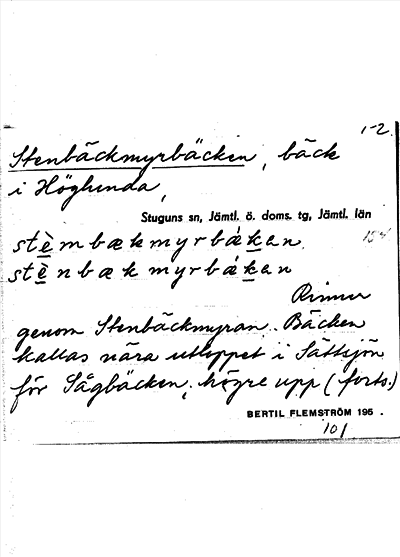 1-2.
Stenbäckmyrbäcken, bäck
i Höglunda,
Stuguns sn, Jämtl. ö. doms. tg, Jämtl. län
stèmbækmyrbákan.
stènbækmyrbákan
Rinner
genom Stenbäckmyran. Bäcken
kallas nära utloppet i Sättsjön
för Sågbäcken, högre upp (forts.)
BERTIL FLEMSTRÖM 195 .
101